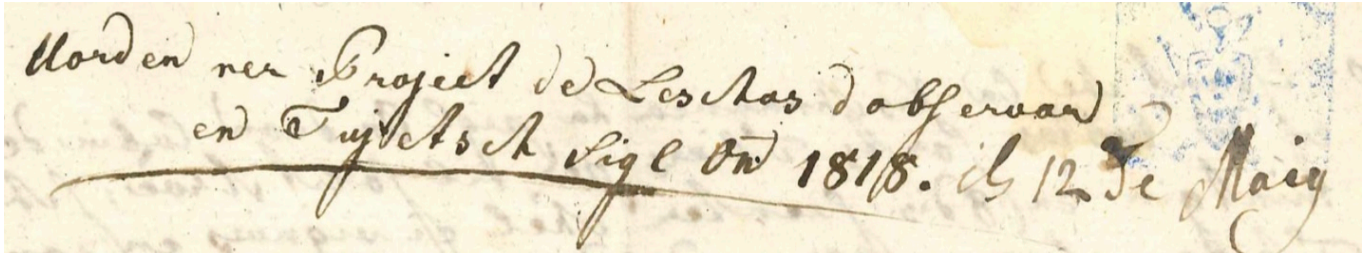 Uorden ner Project de Leschas d observar
en Tujetsch sigl On̄ 1818. ils 12 de Maig